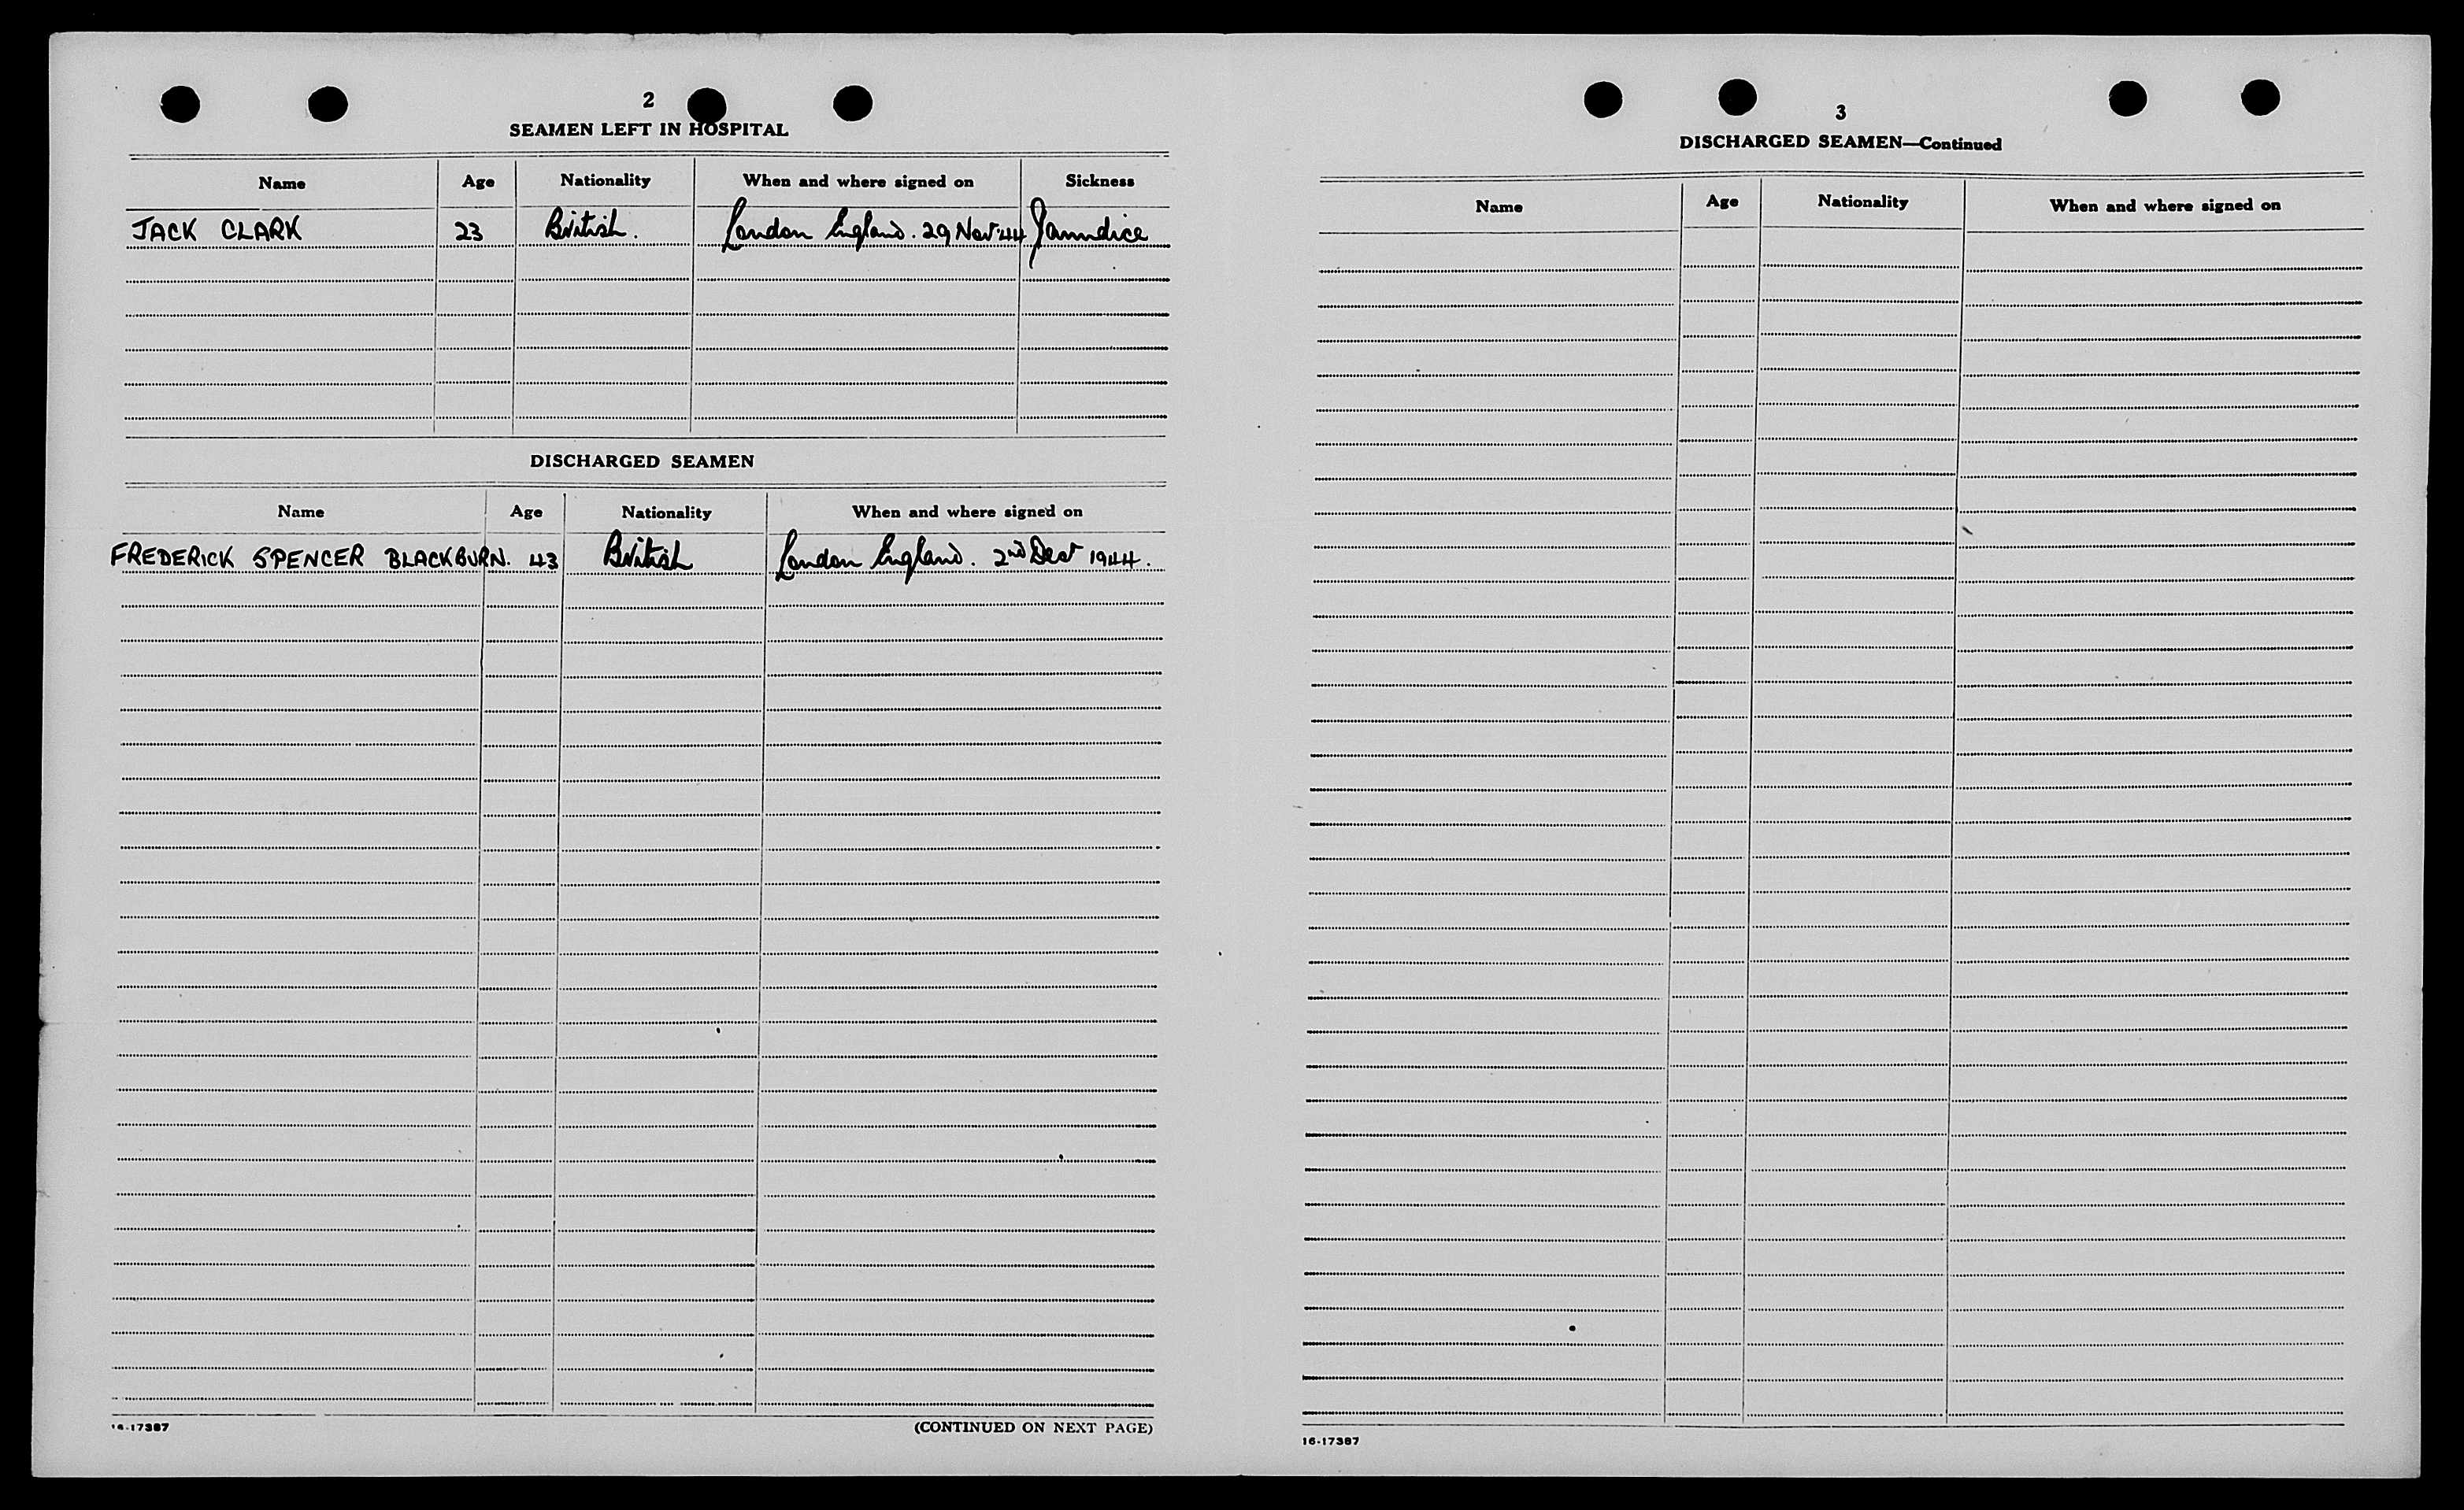 2
SEAMEN LEFT IN HOSPITAL
Name Age Nationality When and where signed on Sickness
JACK CLARK 23 British. London England. 29 Nov 44 Jaundice
DISCHARGED SEAMEN
Name Age Nationality When and where signed on
FREDERICK SPENCER BLACKBURN. 43 British London England. 2nd Dec 1944.
16-17387
(CONTINUED ON NEXT PAGE)
3
DISCHARGED SEAMEN—Continued
Name Age Nationality When and where signed on
16-17387